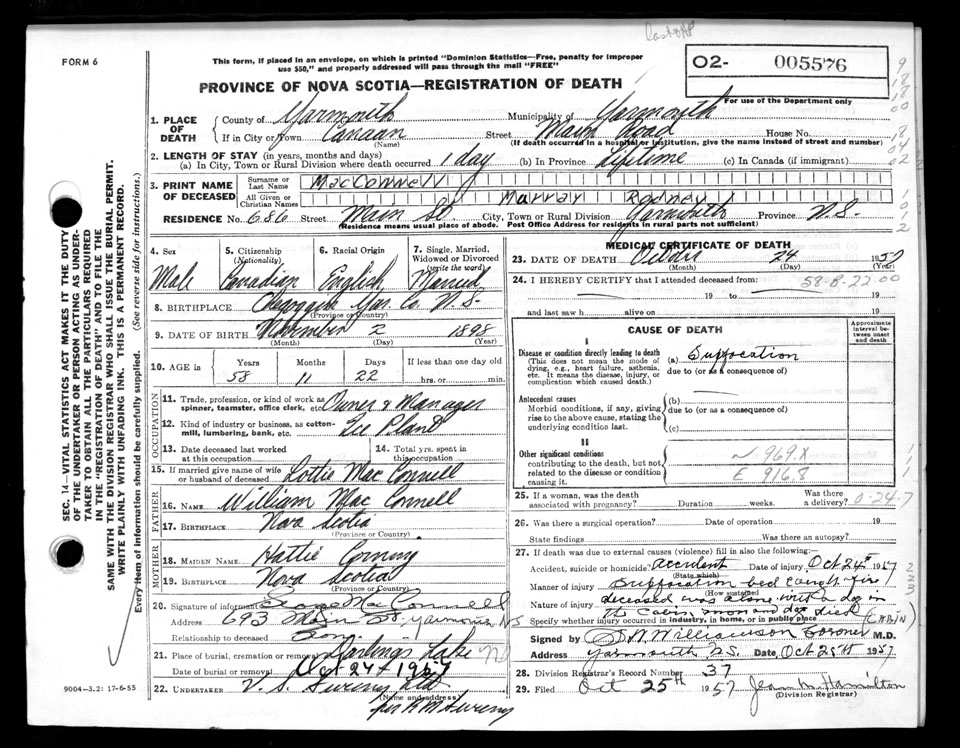 FORM 6
This form, if placed in an envelope, on which is printed "Dominion Statistics—Free, penalty for improper
use $50," and properly addressed will pass through the mail "FREE"
PROVINCE OF NOVA SCOTIA—REGISTRATION OF DEATH
02- 005576
For use of the Department only
1. PLACE OF DEATH
County of Yarmouth Municipality of Yarmouth
If in City or Town Canaan Street Main Road House No.
(Name) (If death occurred in a hospital or institution, give the name instead of street and number)
2. LENGTH OF STAY (in years, months and days)
(a) In City, Town or Rural Division where death occurred 1 day (b) In Province Lifetime (c) In Canada (if immigrant)
3. PRINT NAME OF DECEASED
Surname or Last Name MacConnell
All Given or Christian Names Murray Rodney
RESIDENCE No. 686 Street Main St. City, Town or Rural Division Yarmouth Province N.S.
(Residence means usual place of abode. Post Office Address for residents in rural parts not sufficient)
4. Sex Male
5. Citizenship (Nationality) Canadian
6. Racial Origin English
7. Single, Married, Widowed or Divorced (write the word) Married
8. BIRTHPLACE Yar. Co. N.S.
(Province or Country)
9. DATE OF BIRTH November 2 1898
(Month) (Day) (Year)
10. AGE in Years Months Days If less than one day old
58 11 22 hrs. or min.
OCCUPATION
11. Trade, profession, or kind of work as spinner, teamster, office clerk, etc. Owner & Manager
12. Kind of industry or business, as cotton-mill, lumbering, bank, etc. Ice Plant
13. Date deceased last worked at this occupation
14. Total yrs. spent in this occupation
15. If married give name of wife or husband of deceased Lottie Mac Connell
FATHER
16. NAME William Mac Connell
17. BIRTHPLACE Nova Scotia
(Province or Country)
MOTHER
18. MAIDEN NAME Hattie Corning
19. BIRTHPLACE Nova Scotia
(Province or Country)
20. Signature of informant George MacConnell
Address 693 Main St. Yarmouth NS
Relationship to deceased Son
21. Place of burial, cremation or removal Darlings Lake
Date of burial or removal Oct 27th 1957
22. UNDERTAKER V. S. Sweeny
(Name and address)
per R M Sweeny
9004-3.2: 17-6-55
SEC. 14—VITAL STATISTICS ACT MAKES IT THE DUTY
OF THE UNDERTAKER OR PERSON ACTING AS UNDER-
TAKER TO OBTAIN ALL THE PARTICULARS REQUIRED
IN THE "REGISTRATION OF DEATH" AND TO FILE THE
SAME WITH THE DIVISION REGISTRAR WHO SHALL ISSUE THE BURIAL PERMIT.
WRITE PLAINLY WITH UNFADING INK. THIS IS A PERMANENT RECORD.
Every item of information should be carefully supplied. (See reverse side for instructions.)
MEDICAL CERTIFICATE OF DEATH
23. DATE OF DEATH October 24 1957
(Month) (Day) (Year)
24. I HEREBY CERTIFY that I attended deceased from 58-B-22.00
19 to 19
and last saw h alive on 19
CAUSE OF DEATH
Approximate interval between onset and death
I
Disease or condition directly leading to death
(This does not mean the mode of dying, e.g., heart failure, asthenia, etc. It means the disease, injury, or complication which caused death.)
(a) Suffocation
due to (or as a consequence of)
Antecedent causes
Morbid conditions, if any, giving rise to the above cause, stating the underlying condition last.
(b)
due to (or as a consequence of)
(c)
II
Other significant conditions
contributing to the death, but not related to the disease or condition causing it.
N 969.X
E 916.8
25. If a woman, was the death associated with pregnancy? Duration weeks. Was there a delivery? 0-24-7
26. Was there a surgical operation? Date of operation 19
State findings Was there an autopsy?
27. If death was due to external causes (violence) fill in also the following:
Accident, suicide or homicide? accident Date of injury Oct 24th 1957
(State which)
Manner of injury Suffocation bed caught fire
(How sustained)
Nature of injury deceased was alone with a dog in
the cabin, man and dog died
Specify whether injury occurred in industry, in home, or in public place (CABIN)
Signed by Williamson Coroner M.D.
Address Yarmouth N.S. Date Oct 25th 1957
28. Division Registrar's Record Number 37
29. Filed Oct 25th 1957 Jean M. Hamilton
(Division Registrar)